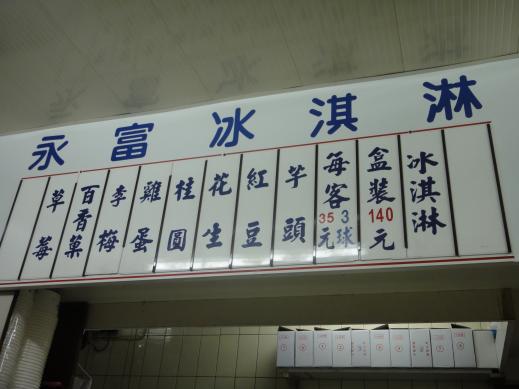 永富冰淇淋
冰淇淋
盒裝140元
每客35元3球
芋頭
紅豆
花生
桂圓
雞蛋
李梅
百香菓
草莓